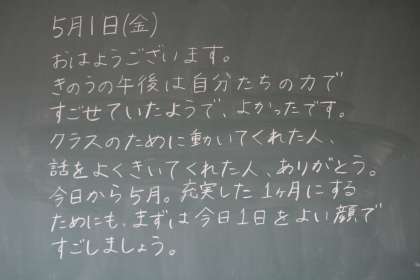 5月1日(金)
おはようございます。
きのうの午後は自分たちの力で
すごせていたようで、よかったです。
クラスのために動いてくれた人、
話をよくきいてくれた人、ありがとう。
今日から5月。充実した1ヶ月にする
ためにも、まずは今日1日をよい顔で
すごしましょう。